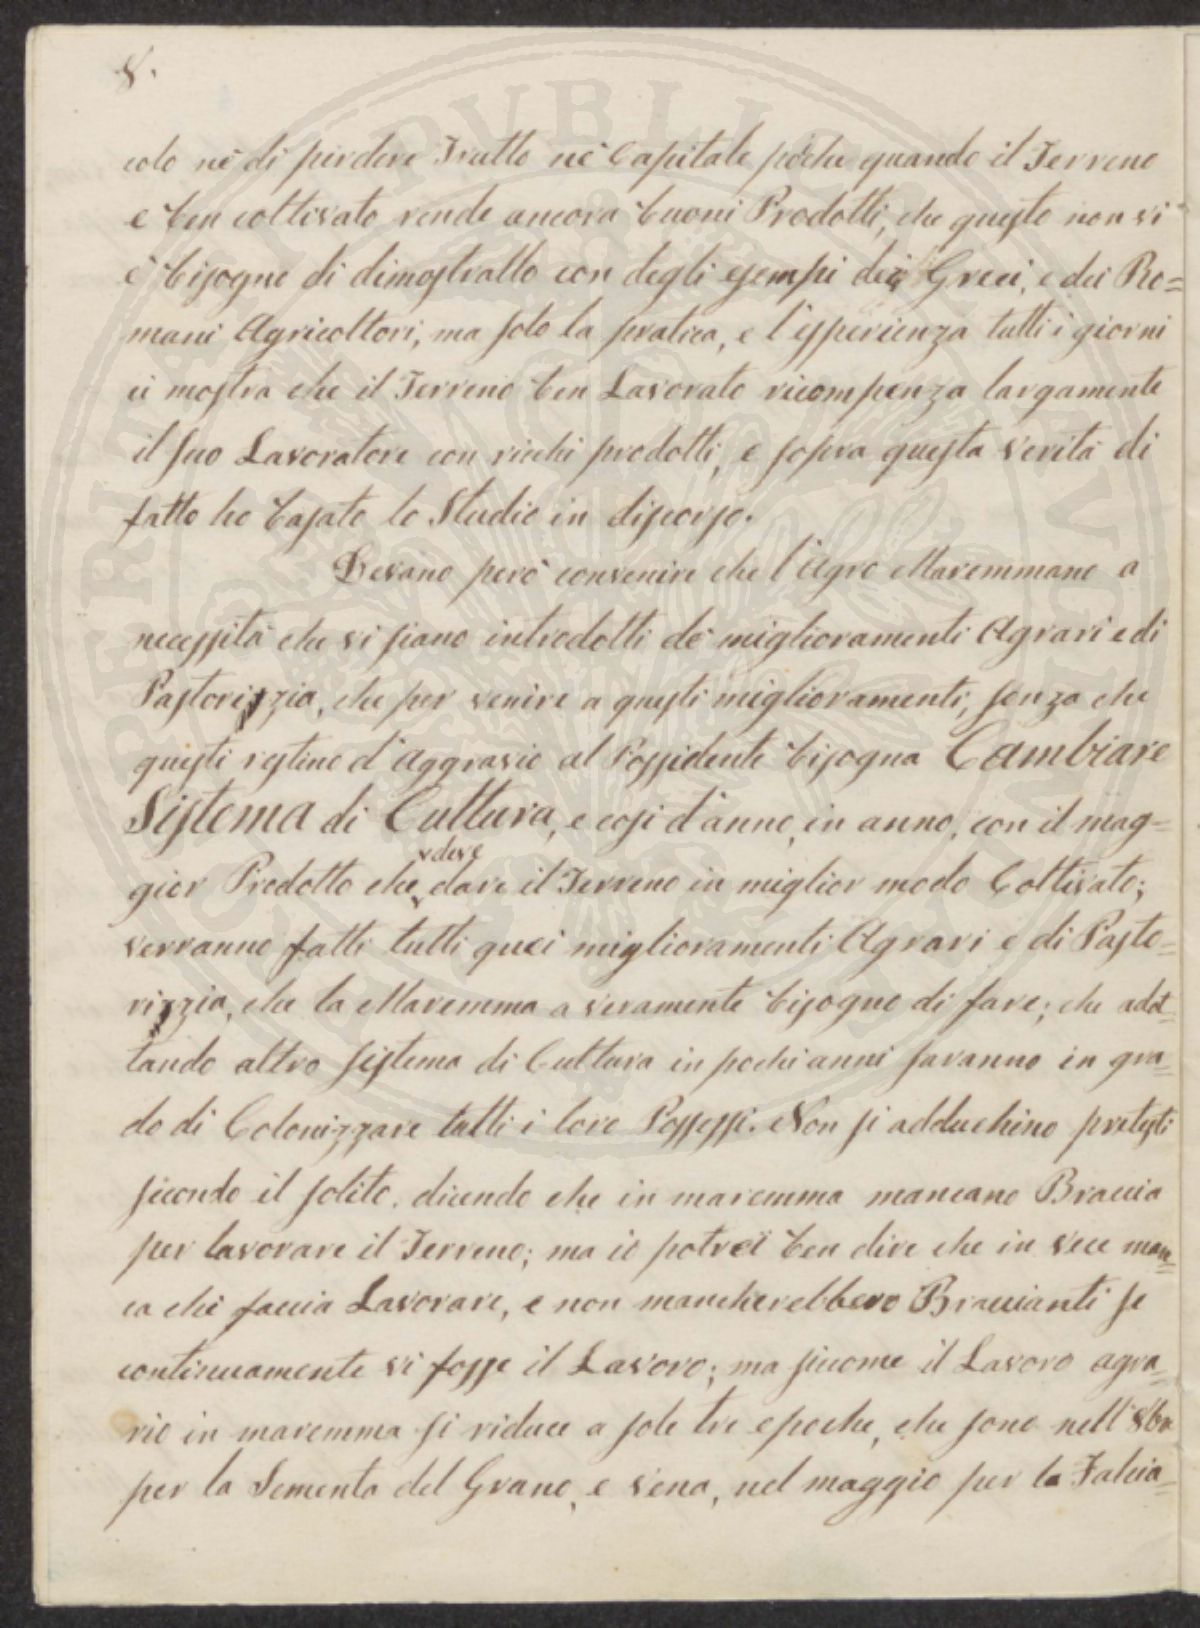 8.
colo nè di perdere Frutto nè Capitale poiche quando il Terreno
è ben coltivato rende ancora buoni Prodotti, che questo non vi
è bisogno di dimostrallo con degli esempi dei Greci, e dei Ro=
mani Agricoltori, ma solo la pratica, e l'esperienza tutti i giorni
ci mostra che il Terreno ben Lavorato ricompenza largamente
il suo Lavoratore con ricchi prodotti, e sopra questa verità di
fatto ho basato lo Studio in discorso.
Devano però convenire che l'Agro Maremmano a
necessità che vi siano introdotti de' miglioramenti Agrari e di
Pastorizzia, che per venire a questi miglioramenti, senza che
questi restino d'aggravio al Possidente bisogna Cambiare
Sistema di Cultura, e così d'anno, in anno, con il mag=
gior Prodotto che deve dare il Terreno in miglior modo Coltivato;
verranno fatti tutti quei miglioramenti Agrari e di Pasto=
rizzia, che la Maremma a veramente bisogno di fare; che adot=
tando altro sistema di Cultura in pochi anni saranno in gra=
do di Colonizzare tutti i loro Possessi. Non si adduchino pretesti
secondo il solito, dicendo che in maremma mancano Braccia
per lavorare il Terreno; ma io potrei ben dire che in vece man=
ca chi faccia Lavorare, e non mancherebbero Braccianti se
continuamente vi fosse il Lavoro; ma siccome il Lavoro agra=
rio in maremma si riduce a sole tre epoche, che sono nell'8bre
per la Sementa del Grano, e Vena, nel maggio per la Falcia=